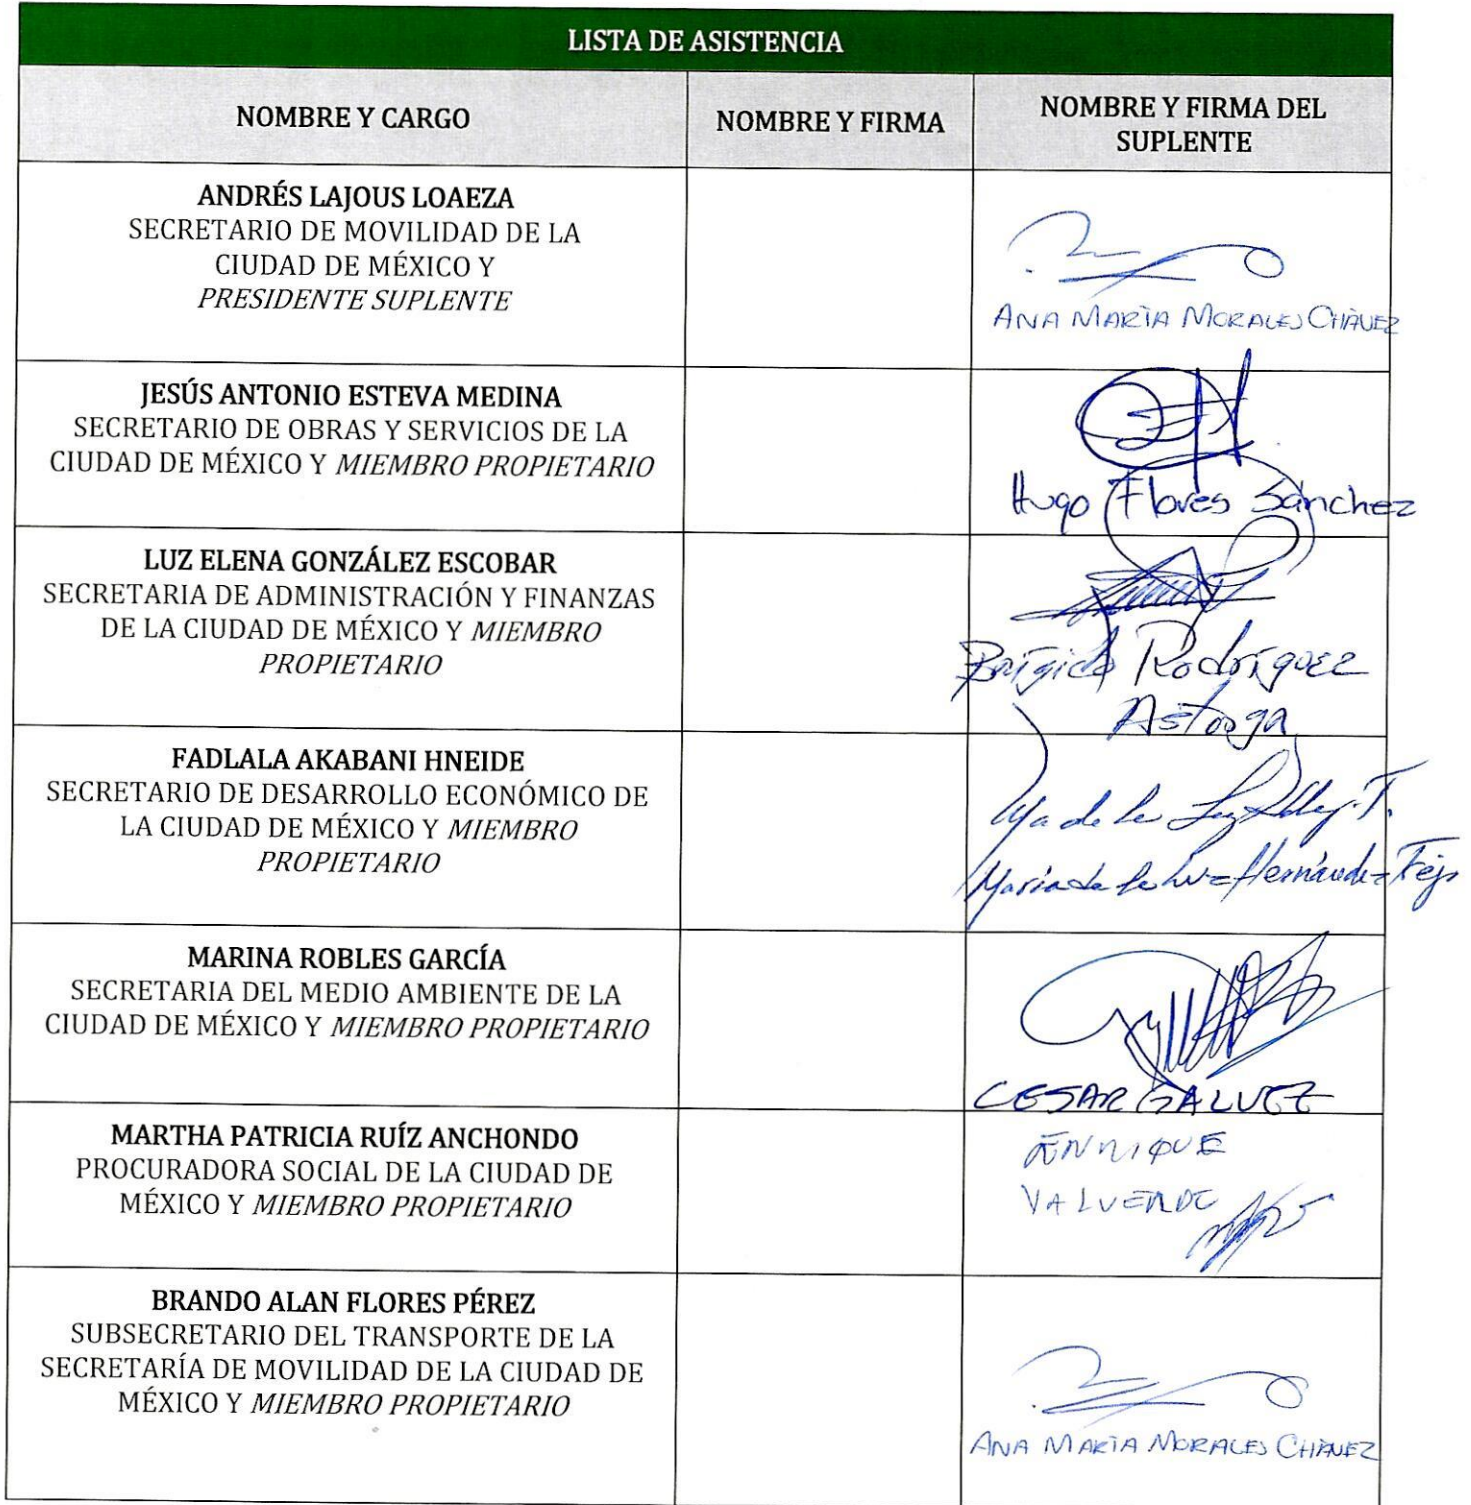 LISTA DE ASISTENCIA
NOMBRE Y CARGO
NOMBRE Y FIRMA
NOMBRE Y FIRMA DEL
SUPLENTE
ANDRÉS LAJOUS LOAEZA
SECRETARIO DE MOVILIDAD DE LA
CIUDAD DE MÉXICO Y
PRESIDENTE SUPLENTE
ANA MARÍA MORALES CHÁVEZ
JESÚS ANTONIO ESTEVA MEDINA
SECRETARIO DE OBRAS Y SERVICIOS DE LA
CIUDAD DE MÉXICO Y MIEMBRO PROPIETARIO
Hugo Flores Sánchez
LUZ ELENA GONZÁLEZ ESCOBAR
SECRETARIA DE ADMINISTRACIÓN Y FINANZAS
DE LA CIUDAD DE MÉXICO Y MIEMBRO
PROPIETARIO
Brígido Rodríguez
Astorga
FADLALA AKABANI HNEIDE
SECRETARIO DE DESARROLLO ECONÓMICO DE
LA CIUDAD DE MÉXICO Y MIEMBRO
PROPIETARIO
Ma de la Luz
María de la Luz Hernández
MARINA ROBLES GARCÍA
SECRETARIA DEL MEDIO AMBIENTE DE LA
CIUDAD DE MÉXICO Y MIEMBRO PROPIETARIO
CESAR GALVEZ
MARTHA PATRICIA RUÍZ ANCHONDO
PROCURADORA SOCIAL DE LA CIUDAD DE
MÉXICO Y MIEMBRO PROPIETARIO
ENRIQUE
VALVERDE
BRANDO ALAN FLORES PÉREZ
SUBSECRETARIO DEL TRANSPORTE DE LA
SECRETARÍA DE MOVILIDAD DE LA CIUDAD DE
MÉXICO Y MIEMBRO PROPIETARIO
ANA MARÍA MORALES CHÁVEZ